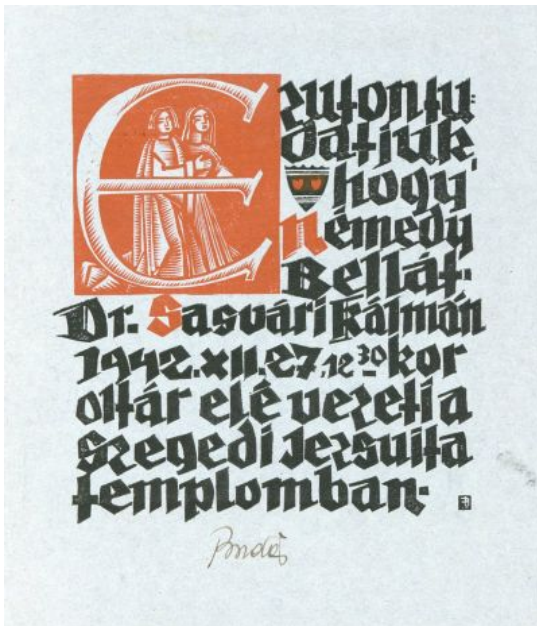 Ezuton tu=
datjuk,
hogy
Némedy
Bellát·
Dr. Sasvári Kálmán
1942.XII.27, 12 30 kor
oltár elé vezeti a
szegedi Jezsuita
templomban·